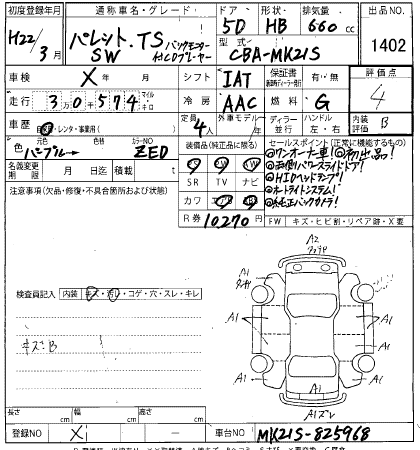 初度登録年月 通称車名・グレード ドア 形状 排気量 出品NO
H22/3月 パレット.TS バックモニター 5D HB 660cc
SW HIDプレーヤー 型式 CBA-MK21S 1402
車検 X 年 月 シフト IAT 保証書 有・無 評価点
走行 3万0千574 マイル キロ 冷房 AAC 燃料 G 4
車歴 自家・レンタ・事業用( ) 定員 4人 外車モデル 年 ディーラー 並行 ハンドル 左・右 内装評価 B
色 元色 パープル→ 色替 カラーNO ZED
装備品(純正品に限る) セールスポイント(正常に機能するもの)
◎ワンオーナー車!◎初出品!
◎左側パワースライドドア!
名義変更期限 月 日迄 積載 t
SR TV ナビ
◎HIDヘッドランプ!
◎オートライトシステム!
注意事項(欠品・修復・不具合箇所および状態)
カワ エアB
◎純正バックカメラ!
R券 10270円 FW キズ・ヒビ割・リペア跡・X要
検査員記入 内装 キズ・汚レ・コゲ・穴・スレ・キレ
キズB
A2
A1
A1
A1
A1
A1
A1
A1ズレ
長さ cm 幅 cm 高さ cm
登録NO X — 車台NO MK21S-825968